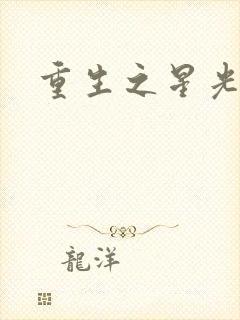 重生之星光
龍洋